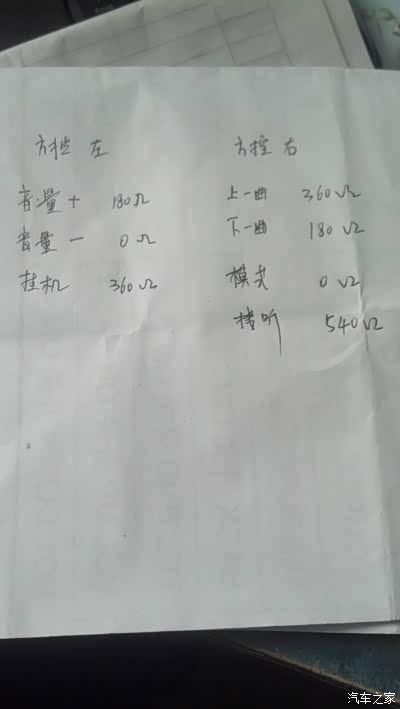 方控 左 方控 右
音量 + 180Ω 上一曲 360Ω
音量 - 0Ω 下一曲 180Ω
挂机 360Ω 模式 0Ω
接听 540Ω
汽车之家